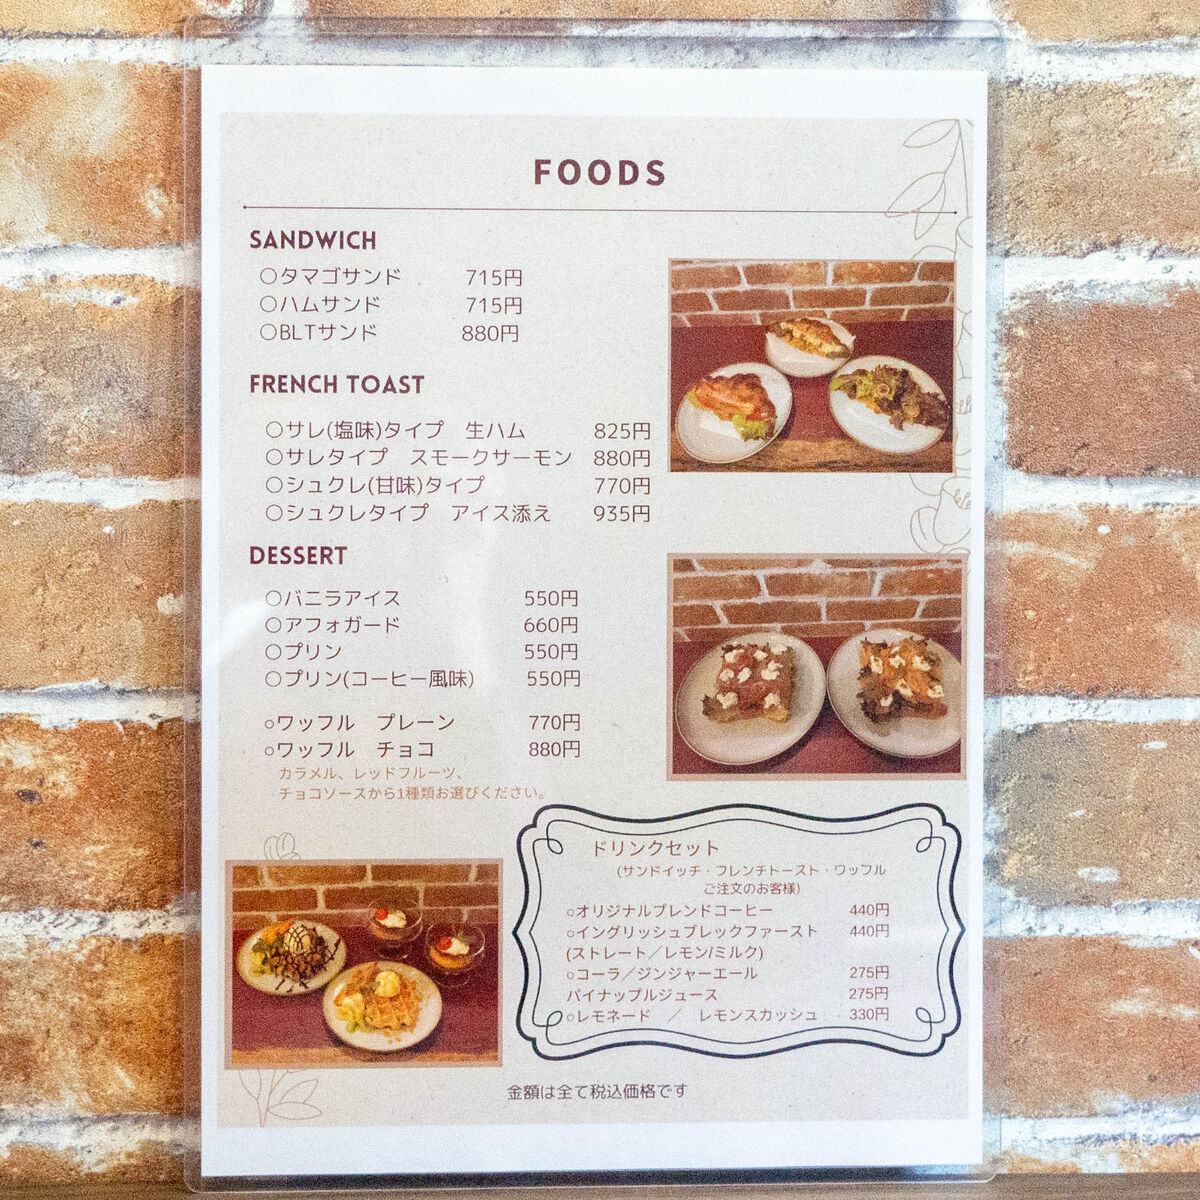 FOODS
SANDWICH
○タマゴサンド 715円
○ハムサンド 715円
○BLTサンド 880円
FRENCH TOAST
○サレ(塩味)タイプ 生ハム 825円
○サレタイプ スモークサーモン 880円
○シュクレ(甘味)タイプ 770円
○シュクレタイプ アイス添え 935円
DESSERT
○バニラアイス 550円
○アフォガード 660円
○プリン 550円
○プリン(コーヒー風味) 550円
○ワッフル プレーン 770円
○ワッフル チョコ 880円
カラメル、レッドフルーツ、
チョコソースから1種類お選びください。
ドリンクセット
(サンドイッチ・フレンチトースト・ワッフル
ご注文のお客様)
○オリジナルブレンドコーヒー 440円
○イングリッシュブレックファースト 440円
(ストレート／レモン/ミルク)
○コーラ／ジンジャーエール 275円
パイナップルジュース 275円
○レモネード ／ レモンスカッシュ 330円
金額は全て税込価格です